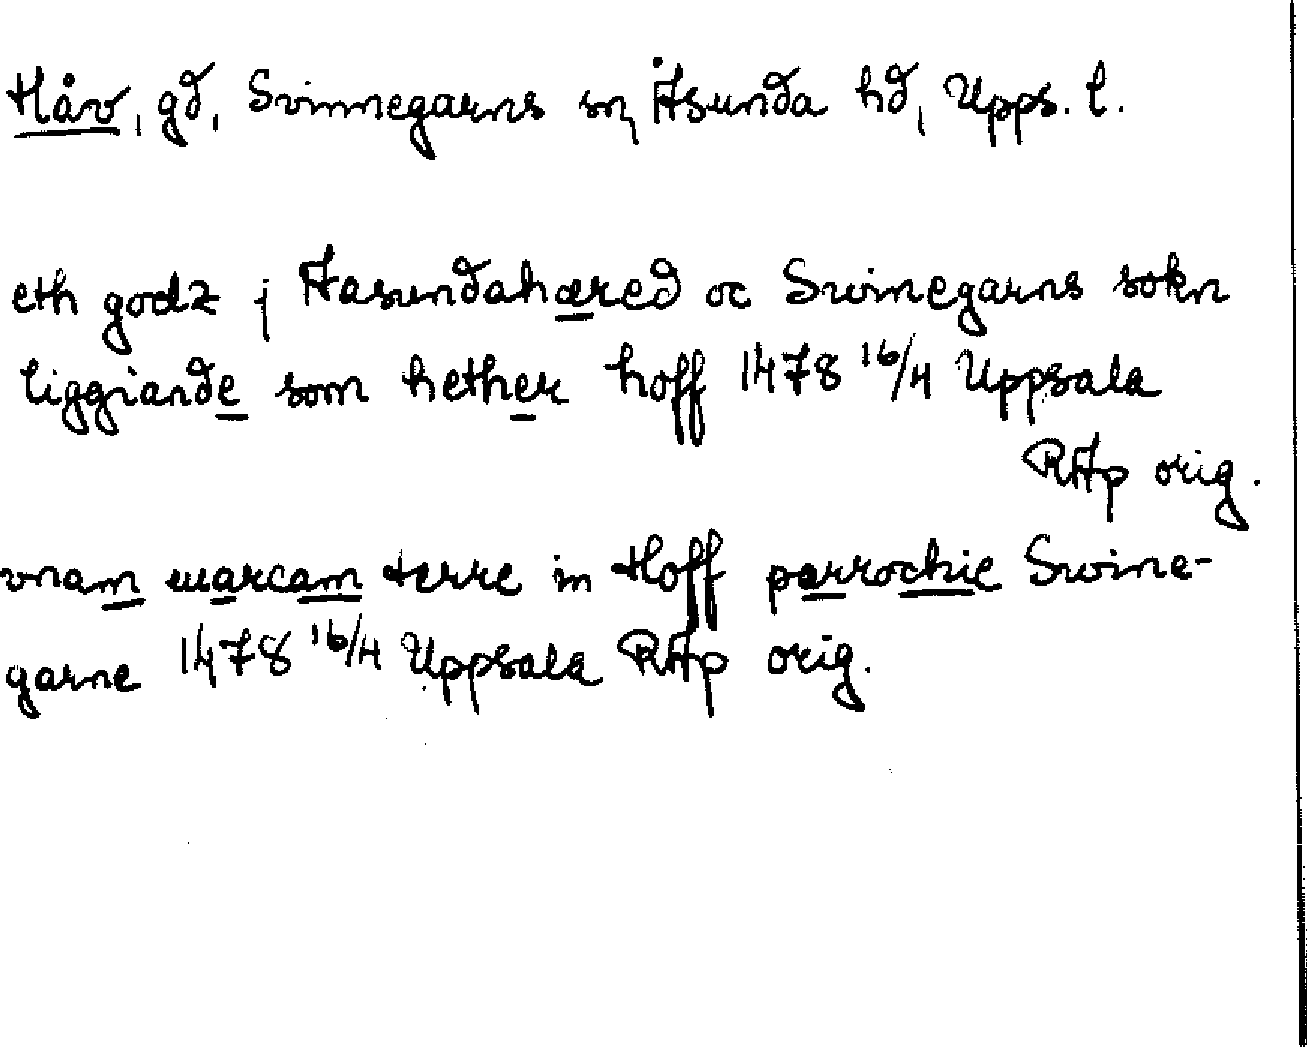 Håv, gd, Svinnegarns sn, Åsunda hd, Upps. l.
eth godz j Aasundahæred oc Swinegarns sokn
liggiande som hether hoff 1478 16/4 Uppsala
RAp orig.
vnam marcam terre in Hoff parrochie Swine-
garne 1478 16/4 Uppsala RAp orig.